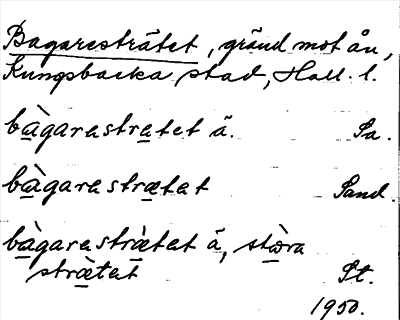 Bagaresträtet, gränd mot ån,
Kungsbacka stad, Hall. l.
bàgarastratet ä. Sa.
bàgarastrætat Sand.
bàgarastràtat ä, stòra
stràtat St.
1950.